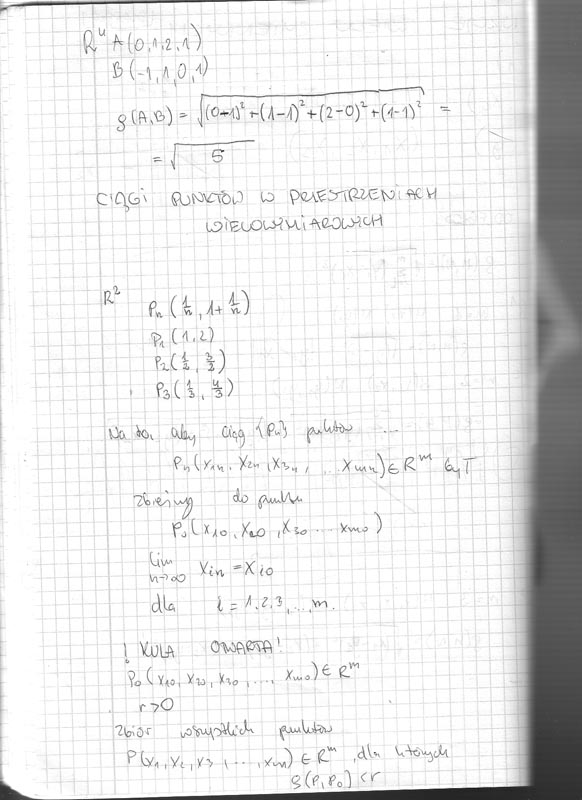 R⁴ A(0,1,2,1)
B(-1,1,0,1)
ρ(A,B) = √((0+1)² + (1-1)² + (2-0)² + (1-1)²) =
= √5
CIĄGI PUNKTÓW W PRZESTRZENIACH
WIELOWYMIAROWYCH
R²
Pn(1/n, 1+1/n)
P1(1,2)
P2(1/2, 3/2)
P3(1/3, 4/3)
Na to, aby ciąg {Pn} punktów ...
Pn(x1n, x2n, x3n, ... xmn) ∈ Rᵐ był
zbieżny do punktu
P0(x10, x20, x30 ... xm0)
lim n→∞ xin = xi0
dla i = 1,2,3,...,m.
! KULA OTWARTA!
P0(x10, x20, x30, ..., xm0) ∈ Rᵐ
r>0
zbiór wszystkich punktów
P(x1, x2, x3, ..., xm) ∈ Rᵐ, dla których
ρ(P,P0) < r